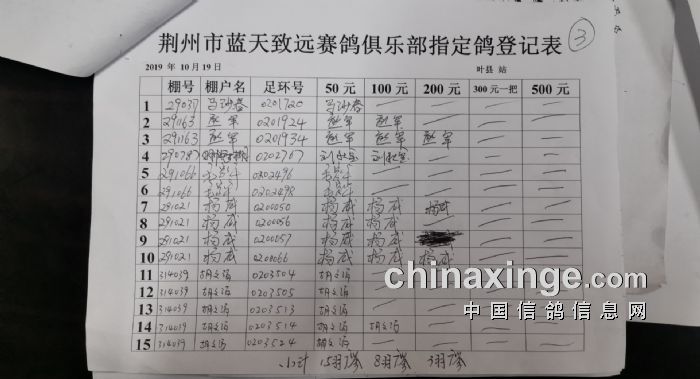 荆州市蓝天致远赛鸽俱乐部指定鸽登记表 3
2019 年 10月19日 叶县 站
棚号 棚户名 足环号 50元 100元 200元 300元一把 500元
1 29037 0201720
2 291163 赵军 0201924 赵军 赵军
3 291163 赵军 0201934 赵军 赵军 赵军
4 290787 0202767
5 291066 0202496
6 291066 0202498
7 291021 杨威 0200050 杨威 杨威 杨威
8 291021 杨威 0200056 杨威 杨威
9 291021 杨威 0200057 杨威 杨威
10 291021 杨威 0200066 杨威 杨威 杨威
11 314039 胡文滔 0203504 胡文滔
12 314039 胡文滔 0203505 胡文滔
13 314039 胡文滔 0203513 胡文滔
14 314039 胡文滔 0203514 胡文滔 胡文滔
15 314039 胡文滔 0203524 胡文滔
小计 15羽 8羽 3羽
chinaxinge.com
中国信鸽信息网